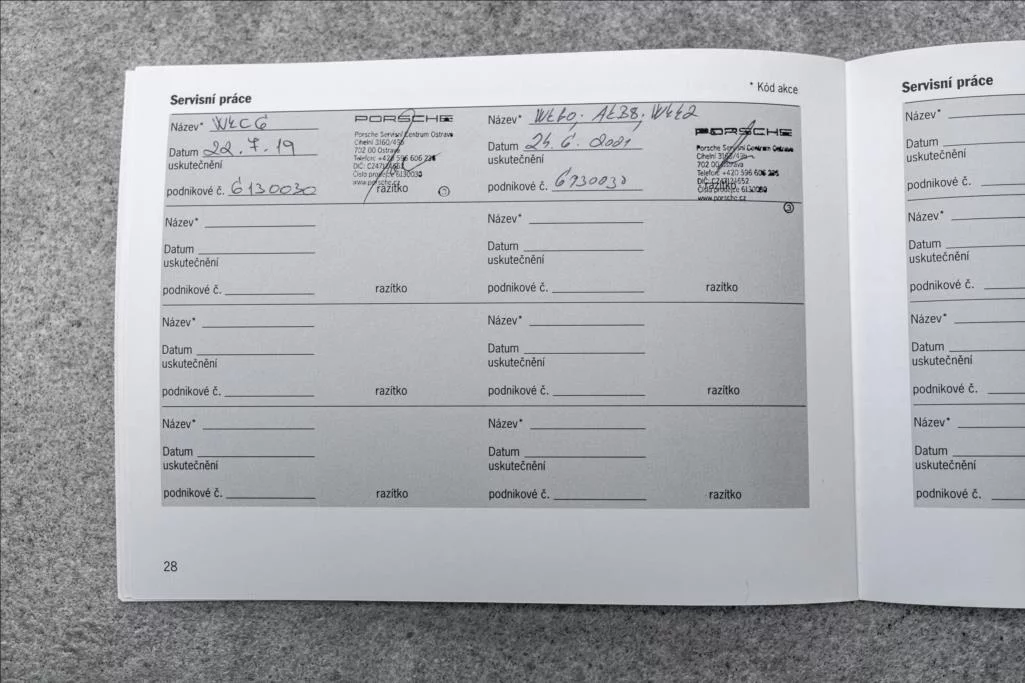 Servisní práce
* Kód akce
Název* WLC6
Datum 22.7.19
uskutečnění
podnikové č. 6130030
PORSCHE
Porsche Servisní Centrum Ostrava
Cihelní 3160/49b
702 00 Ostrava
Telefon: +420 596 606
DIČ:
Číslo prodejce 6130030
www.porsche.cz
razítko
Název*
Datum 24.6.2021
uskutečnění
podnikové č. 6130030
PORSCHE
Porsche Servisní Centrum Ostrava
Cihelní 3160/49b
702 00 Ostrava
Telefon: +420 596 606
DIČ:
razítko
Číslo prodejce 6130030
www.porsche.cz
Název*
Datum
uskutečnění
podnikové č. razítko
Název*
Datum
uskutečnění
podnikové č. razítko
Název*
Datum
uskutečnění
podnikové č. razítko
Název*
Datum
uskutečnění
podnikové č. razítko
Název*
Datum
uskutečnění
podnikové č. razítko
Název*
Datum
uskutečnění
podnikové č. razítko
28
Servisní práce
Název*
Datum
uskutečnění
podnikové č.
Název*
Datum
uskutečnění
podnikové č.
Název*
Datum
uskutečnění
podnikové č.
Název*
Datum
uskutečnění
podnikové č.